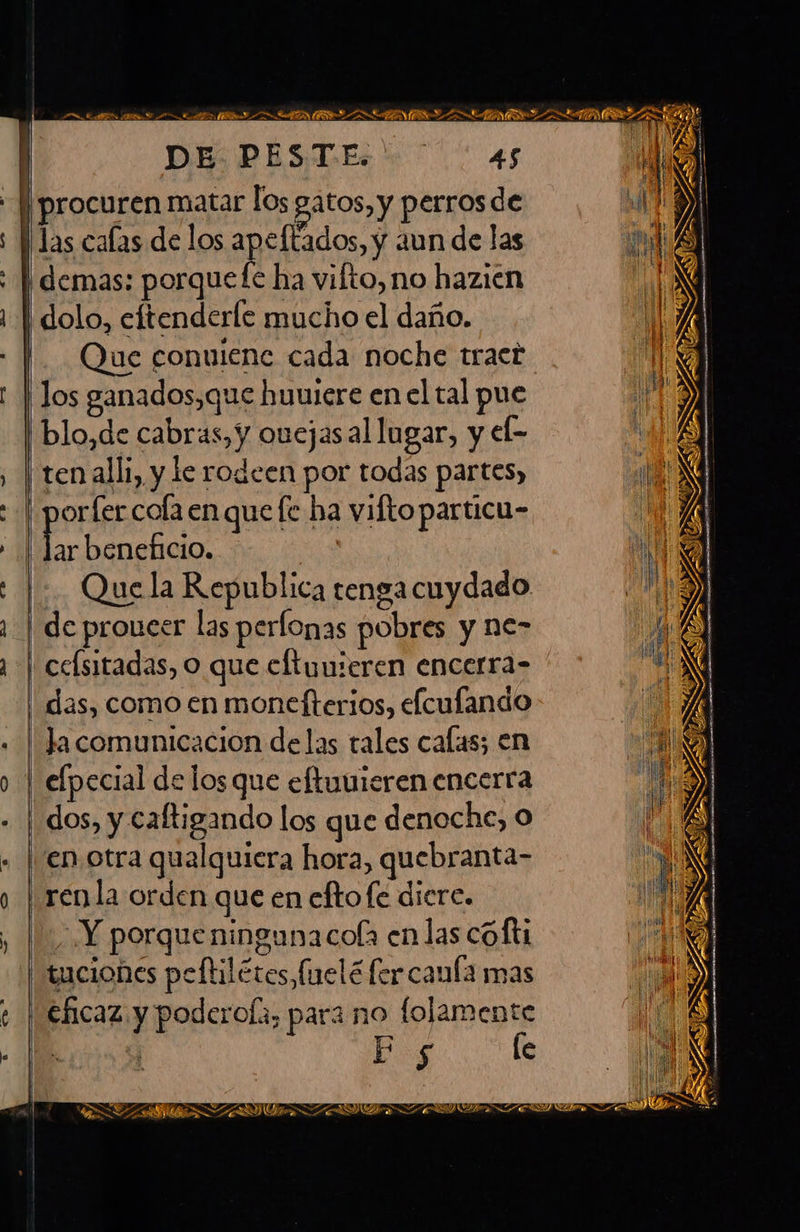 DE PESTE. 45
procuren matar los gatos, y perros de
las casas de los apestados, y aun de las
demas: porque se ha visto, no hazien
dolo, estenderse mucho el daño.
Que conuiene cada noche traer
los ganados, que huuiere en el tal pue
blo, de cabras, y ouejas al lugar, y es-
ten alli, y le rodeen por todas partes,
por ser cosa en que se ha visto particu-
lar beneficio.
Que la Republica tenga cuydado
de proueer las personas pobres y ne-
cessitadas, o que estuuieren encerra-
das, como en monesterios, escusando
la comunicacion de las tales casas; en
especial de los que estuuieren encerra
dos, y castigando los que de noche, o
en otra qualquiera hora, quebranta-
ren la orden que en esto se diere.
Y porque ninguna cosa en las cõsti
tuciones pestilẽtes, suelẽ ser causa mas
eficaz y poderosa, para no solamente
F 5 se